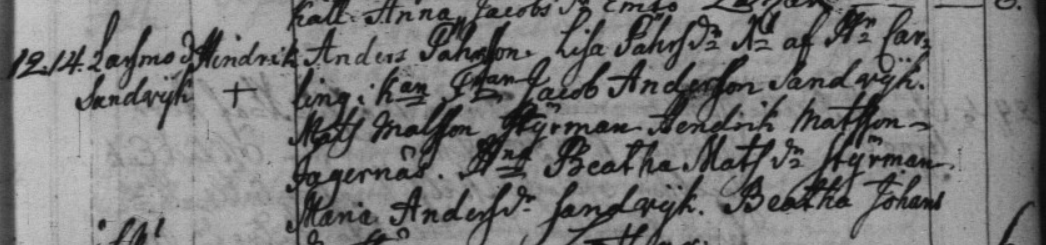 kall. Anna Jacobs dr
12. 14. Lassmo d Hindrik Anders Påhrsson. Lisa Påhrs dr Kt af Hr Car-
Sandvijk + ling: Jacob Andersson Sandvijk.
Mats Matsson Styrman Hendrik Matsson
Fagernäs. Beatha Mats dr Styrman
Maria Anders dr Sandvijk. Beatha Johans